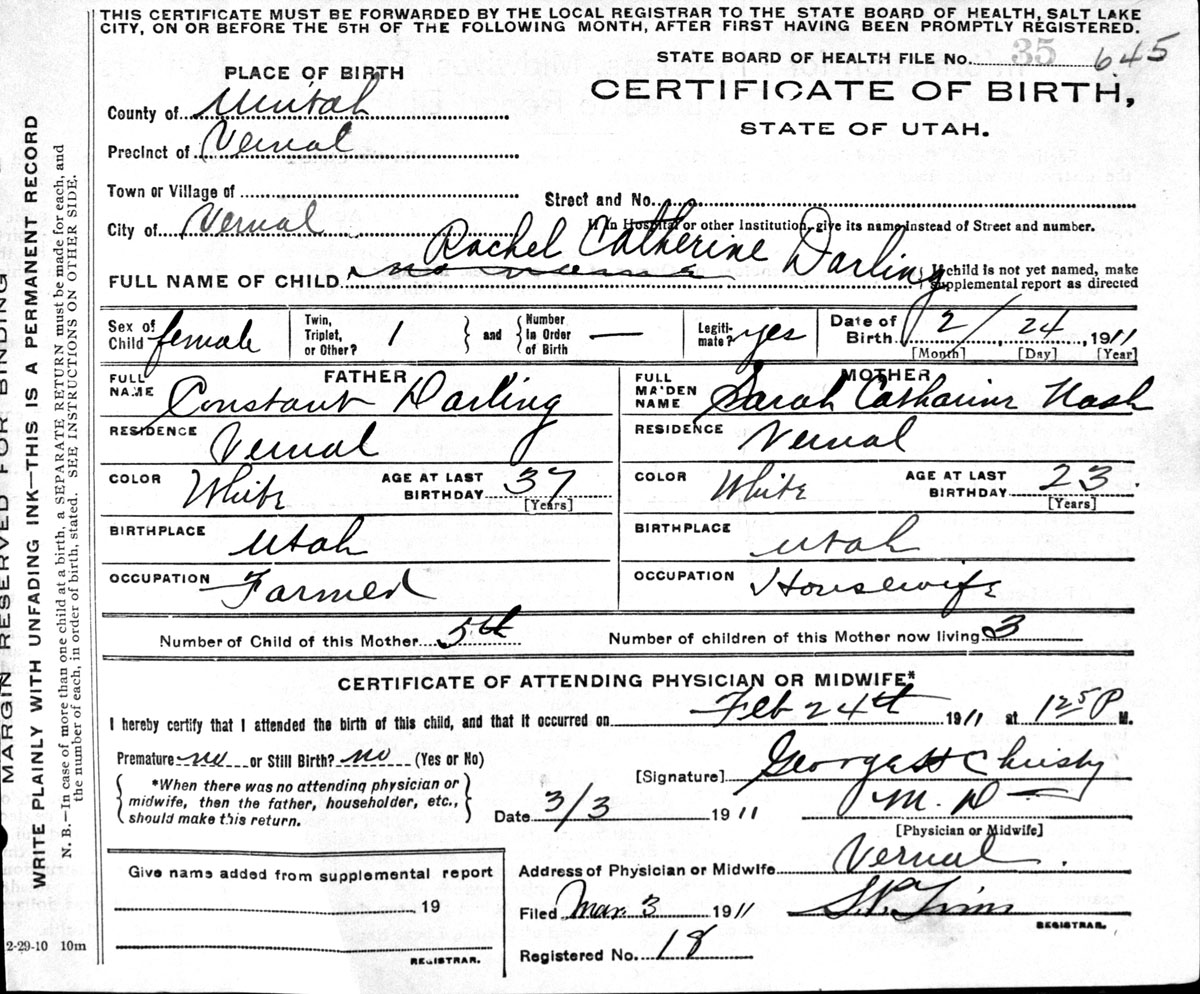 THIS CERTIFICATE MUST BE FORWARDED BY THE LOCAL REGISTRAR TO THE STATE BOARD OF HEALTH, SALT LAKE
CITY, ON OR BEFORE THE 5TH OF THE FOLLOWING MONTH, AFTER FIRST HAVING BEEN PROMPTLY REGISTERED.
STATE BOARD OF HEALTH FILE No. 35 645
PLACE OF BIRTH
CERTIFICATE OF BIRTH,
STATE OF UTAH.
County of Uintah
Precinct of Vernal
Town or Village of
Street and No.
City of Vernal
If in Hospital or other Institution, give its name instead of Street and number.
Rachel Catherine Darling
FULL NAME OF CHILD no name
If child is not yet named, make
supplemental report as directed
Sex of Child female
Twin, Triplet, or Other? 1 and Number In Order of Birth —
Legiti-mate? yes
Date of Birth 2/24, 1911
[Month] [Day] [Year]
FATHER
FULL NAME Constant Darling
RESIDENCE Vernal
COLOR White AGE AT LAST BIRTHDAY 37
[Years]
BIRTHPLACE Utah
OCCUPATION Farmed
MOTHER
FULL MAIDEN NAME Sarah Catharine Nash
RESIDENCE Vernal
COLOR White AGE AT LAST BIRTHDAY 23.
[Years]
BIRTHPLACE Utah
OCCUPATION Housewife
Number of Child of this Mother 5th Number of children of this Mother now living 3
CERTIFICATE OF ATTENDING PHYSICIAN OR MIDWIFE*
I hereby certify that I attended the birth of this child, and that it occurred on Feb 24th 1911 at 125 P M.
Premature no or Still Birth? no (Yes or No)
*When there was no attending physician or
midwife, then the father, householder, etc.,
should make this return.
[Signature] George H Christy
M. D
[Physician or Midwife]
Date 3/3 1911
Address of Physician or Midwife Vernal.
Give name added from supplemental report
19
REGISTRAR.
Filed Mar. 3 1911
REGISTRAR.
Registered No. 18
2-29-10 10m
MARGIN RESERVED FOR BINDING
WRITE PLAINLY WITH UNFADING INK—THIS IS A PERMANENT RECORD
N. B.—In case of more than one child at a birth, a SEPARATE RETURN must be made for each, and
the number of each, in order of birth, stated. SEE INSTRUCTIONS ON OTHER SIDE.